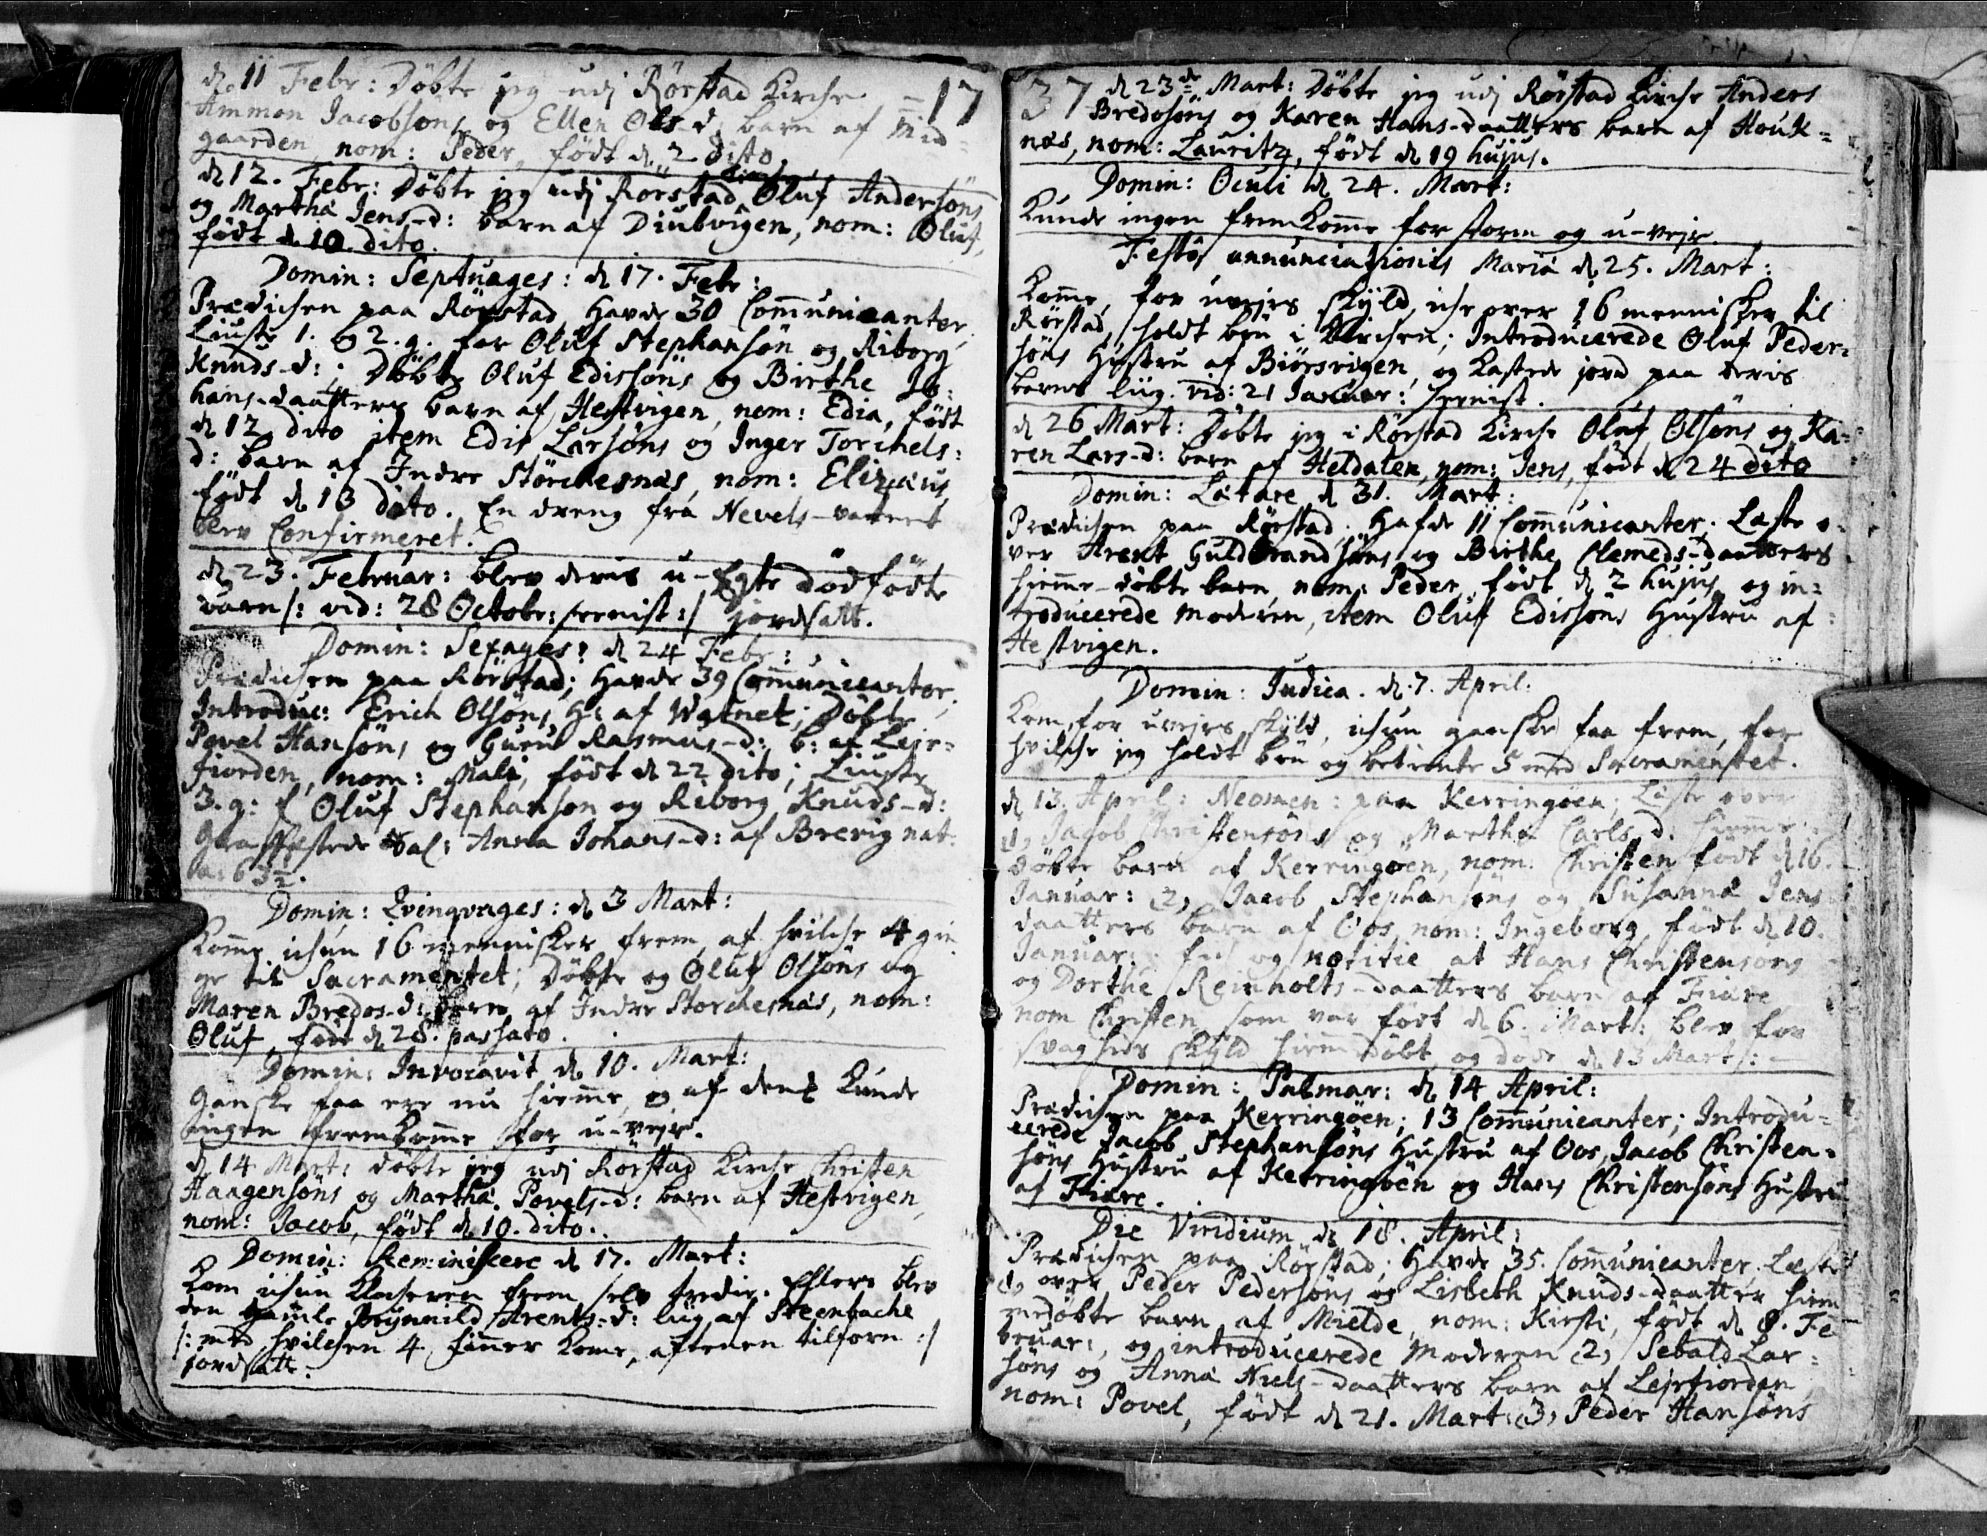 d. 11 Febr: Döbte jeg udj Rörstad Kirche
Ammon Jacobsöns og Ellen Ols-d: barn af Mid-
gaarden nom: Peder, födt d. 2 dito.
17
d. 12. Febr: Döbte jeg udj Rörstad Kirche Oluf Andersöns
og Martha Jens-d: barn af Diubvigen, nom: Oluf,
födt d. 10 dito.
Domin: Septuages: d. 17. Febr:
Prædichen paa Rörstad, Havde 30 Communicanter,
Liuste 1. og 2. g. for Oluf Stephansön og Riborg
Knuds-d: Döbte Oluf Edissöns og Birthe Jo-
hans-daatters barn af Hestvigen, nom: Edia, födt
d. 12 dito item Edis Larsöns og Inger Torchels:
d: barn af Indre Störchesnæs, nom: Elizæus,
födt d. 13 dito. En dreng fra Nevels-vannet
blev Confirmeret.
d. 23. Februar: blev deres u-Egte dödfödte
barn /: vid: 28 Octobr: /: jordsatt.
Domin: Sexages: d. 24 Febr:
Prædichen paa Rörstad; Havde 39 Communicanter,
Introduc: Erich Olsöns H: af Watnet; Döbte
Povel Hansöns og Guru Rasmus-d: b: af Leir-
fiorden, nom: Mali, födt d. 22 dito; Liuste
3. g: f Oluf Stephansön og Riborg Knuds-d:
Graffæstede Sal: Anna Johans-d: af Brevig nat:
a: 63½.
Domin: Qvinqvages: d. 3 Mart:
Komme ichun 16 mennisker frem, af hvilche 4 gin-
ge til Sacramentet; Döbte og Oluf Olsöns og
Maren Bredos-d: barn af Indre Storchesnæs, nom:
Oluf, födt d. 28. passato.
Domin: Invocavit d. 10. Mart:
Ganske faa ere nu hiemme, og af dem kunde
ingen fremkomme for u-vejr.
d. 14 Mart: döbte jeg udj Rörstad Kirche Christen
Haagensöns og Martha Povels-d: barn af Hestvigen,
nom: Jacob, födt d. 10. dito.
Domin: Reminiscere d. 17. Mart:
Kom ichun Klocheren frem selv tredie. Ellers blev
den gamle Brynnild Arents-d: liig af Steenbache
/: med hvilchen 4 finner kome, aftenen tilforn :/
jordsatt.
37
d. 23de Mart: Döbte jeg udj Rörstad Kirche Anders
Bredosöns og Karen Hans-daatters barn af Houk-
næs, nom: Lauritz, födt d. 19 hujus.
Domin: Oculi d. 24. Mart:
Kunde ingen fremkomme for storm og u-vejr.
Festo annunciationis Mariæ d. 25. Mart:
Komme, for uvejrs skyld, iche over 16 mennisker til
Rörstad, holdt bön i Kirchen; Introducerede Oluf Peder-
söns Hustru af Biörsvigen, og kastede jord paa deres
barns liig. vid: 21 Januar:
d. 26 Mart: Döbte jeg i Rörstad Kirche Oluf Olsöns og Ka-
ren Lars-d: barn af Heldalen, nom: Jens, födt d. 24 dito
Domin: Lætare d. 31. Mart:
Prædichen paa Rörstad; Hafde 11 Communicanter. Læste o-
ver Arent Guldbrandsöns og Birthe Clemeds-daatters
hieme-döbte barn, nom: Peder, födt d. 2 hujus, og in-
troducerede moderen, item Oluf Edissöns Hustru af
Hestvigen.
Domin: Judica. d. 7. April:
Kom, for uvejrs skyld, ichun ganske faa frem, for
hvilche jeg holdt bön og betiente 5 med Sacramentet.
d. 13. April: paa Kerringöen; Læste over
1, Jacob Christensöns og Martha Carls-d. hieme-
döbte barn af Kerringöen, nom: Christen födt d. 16.
Januar: 2, Jacob Stephansöns og Susanna Jens
daatters barn af Oos, nom: Ingeborg, födt d. 10.
Januar: og notitie at Hans Christensöns
og Dorthe Reinholts-daatters barn af Fiære
nom Christen, som var födt d. 6. Mart: blev for
svagheds skyld hiemdöbt og döde d. 13 Mart:
Domin: Palmar: d. 14 April:
Prædichen paa Kerringöen; 13 Communicanter; Introdu-
cerede Jacob Stephansöns Hustru af Oos, Jacob Christen-
söns Hustru af Kerringöen og Hans Christensöns Hustru
af Fiære.
Die Viridium d. 18. April:
Prædichen paa Rörstad; Havde 35. Communicanter, Læste
1, over Peder Pedersöns og Lisbeth Knuds-daatter hiem-
medöbte barn af Mielde, nom: Kirsti, födt d. 8. Fe-
bruar:, og introducerede Moderen 2, Sebald Lar-
söns og Anna Niels-daatters barn af Lejrfiorden,
nom: Povel, födt d. 21. Mart: 3, Peder Hansöns